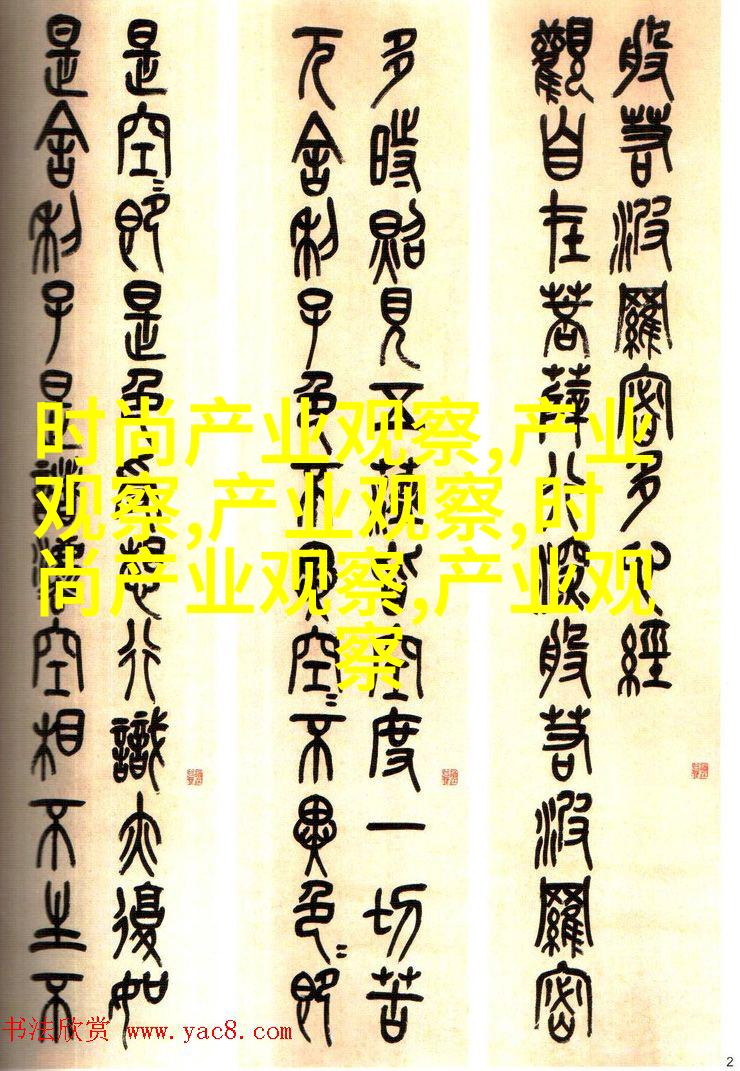 般若波羅密多心經
觀自在菩薩行深般若波羅密
多時照見五蘊皆空度一切苦
厄舍利子色不異空〻不異色〻即
是空〻即是色受想行識亦復如
是舍利子是諸法空相不生不
时尚产业观察,产业
观察,产业观察,时
尚产业观察,产业观
察
书法欣赏 www.yac8.com
2